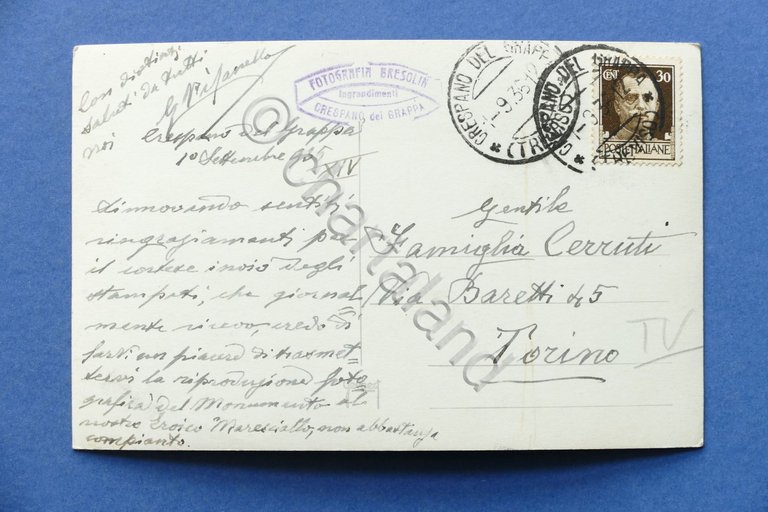 Con distinti
saluti da tutti
noi
FOTOGRAFIA BRESOLIN
Ingrandimenti
CRESPANO del GRAPPA
CRESPANO DEL GRAPPA
1.9.36.12
(TREVISO)
CENT 30
POSTE ITALIANE
Crespano del Grappa
1° Settembre
XIV
Rinnovando sentiti
ringraziamenti per
il cortese invio degli
stampati, che giornal
mente ricevo, credo di
farvi un piacere di trasmet=
tervi la riproduzione foto
grafica del Monumento al
nostro Eroico Maresciallo, non abbastanza
compianto.
Gentile
Famiglia Cerruti
Via Baretti 45
Torino
TV
© Chartaland